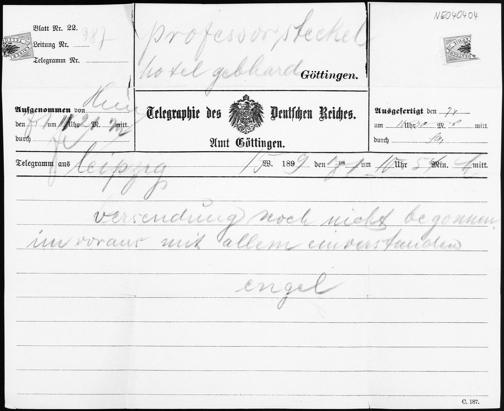 NE040404
Blatt Nr. 22.
Leitung Nr. 387
Telegramm Nr.
professor stäckel
hotel gebhard
Göttingen.
Aufgenommen von
den um Uhr M. mitt.
durch
Telegraphie des Deutschen Reiches.
Amt Göttingen.
Ausgefertigt den
um Uhr M. mitt.
durch
Telegramm aus leipzig W. 189 den um 10 Uhr Min. mitt.
versendung noch nicht begonnen
im voraus mit allem einverstanden
engel
C. 187.